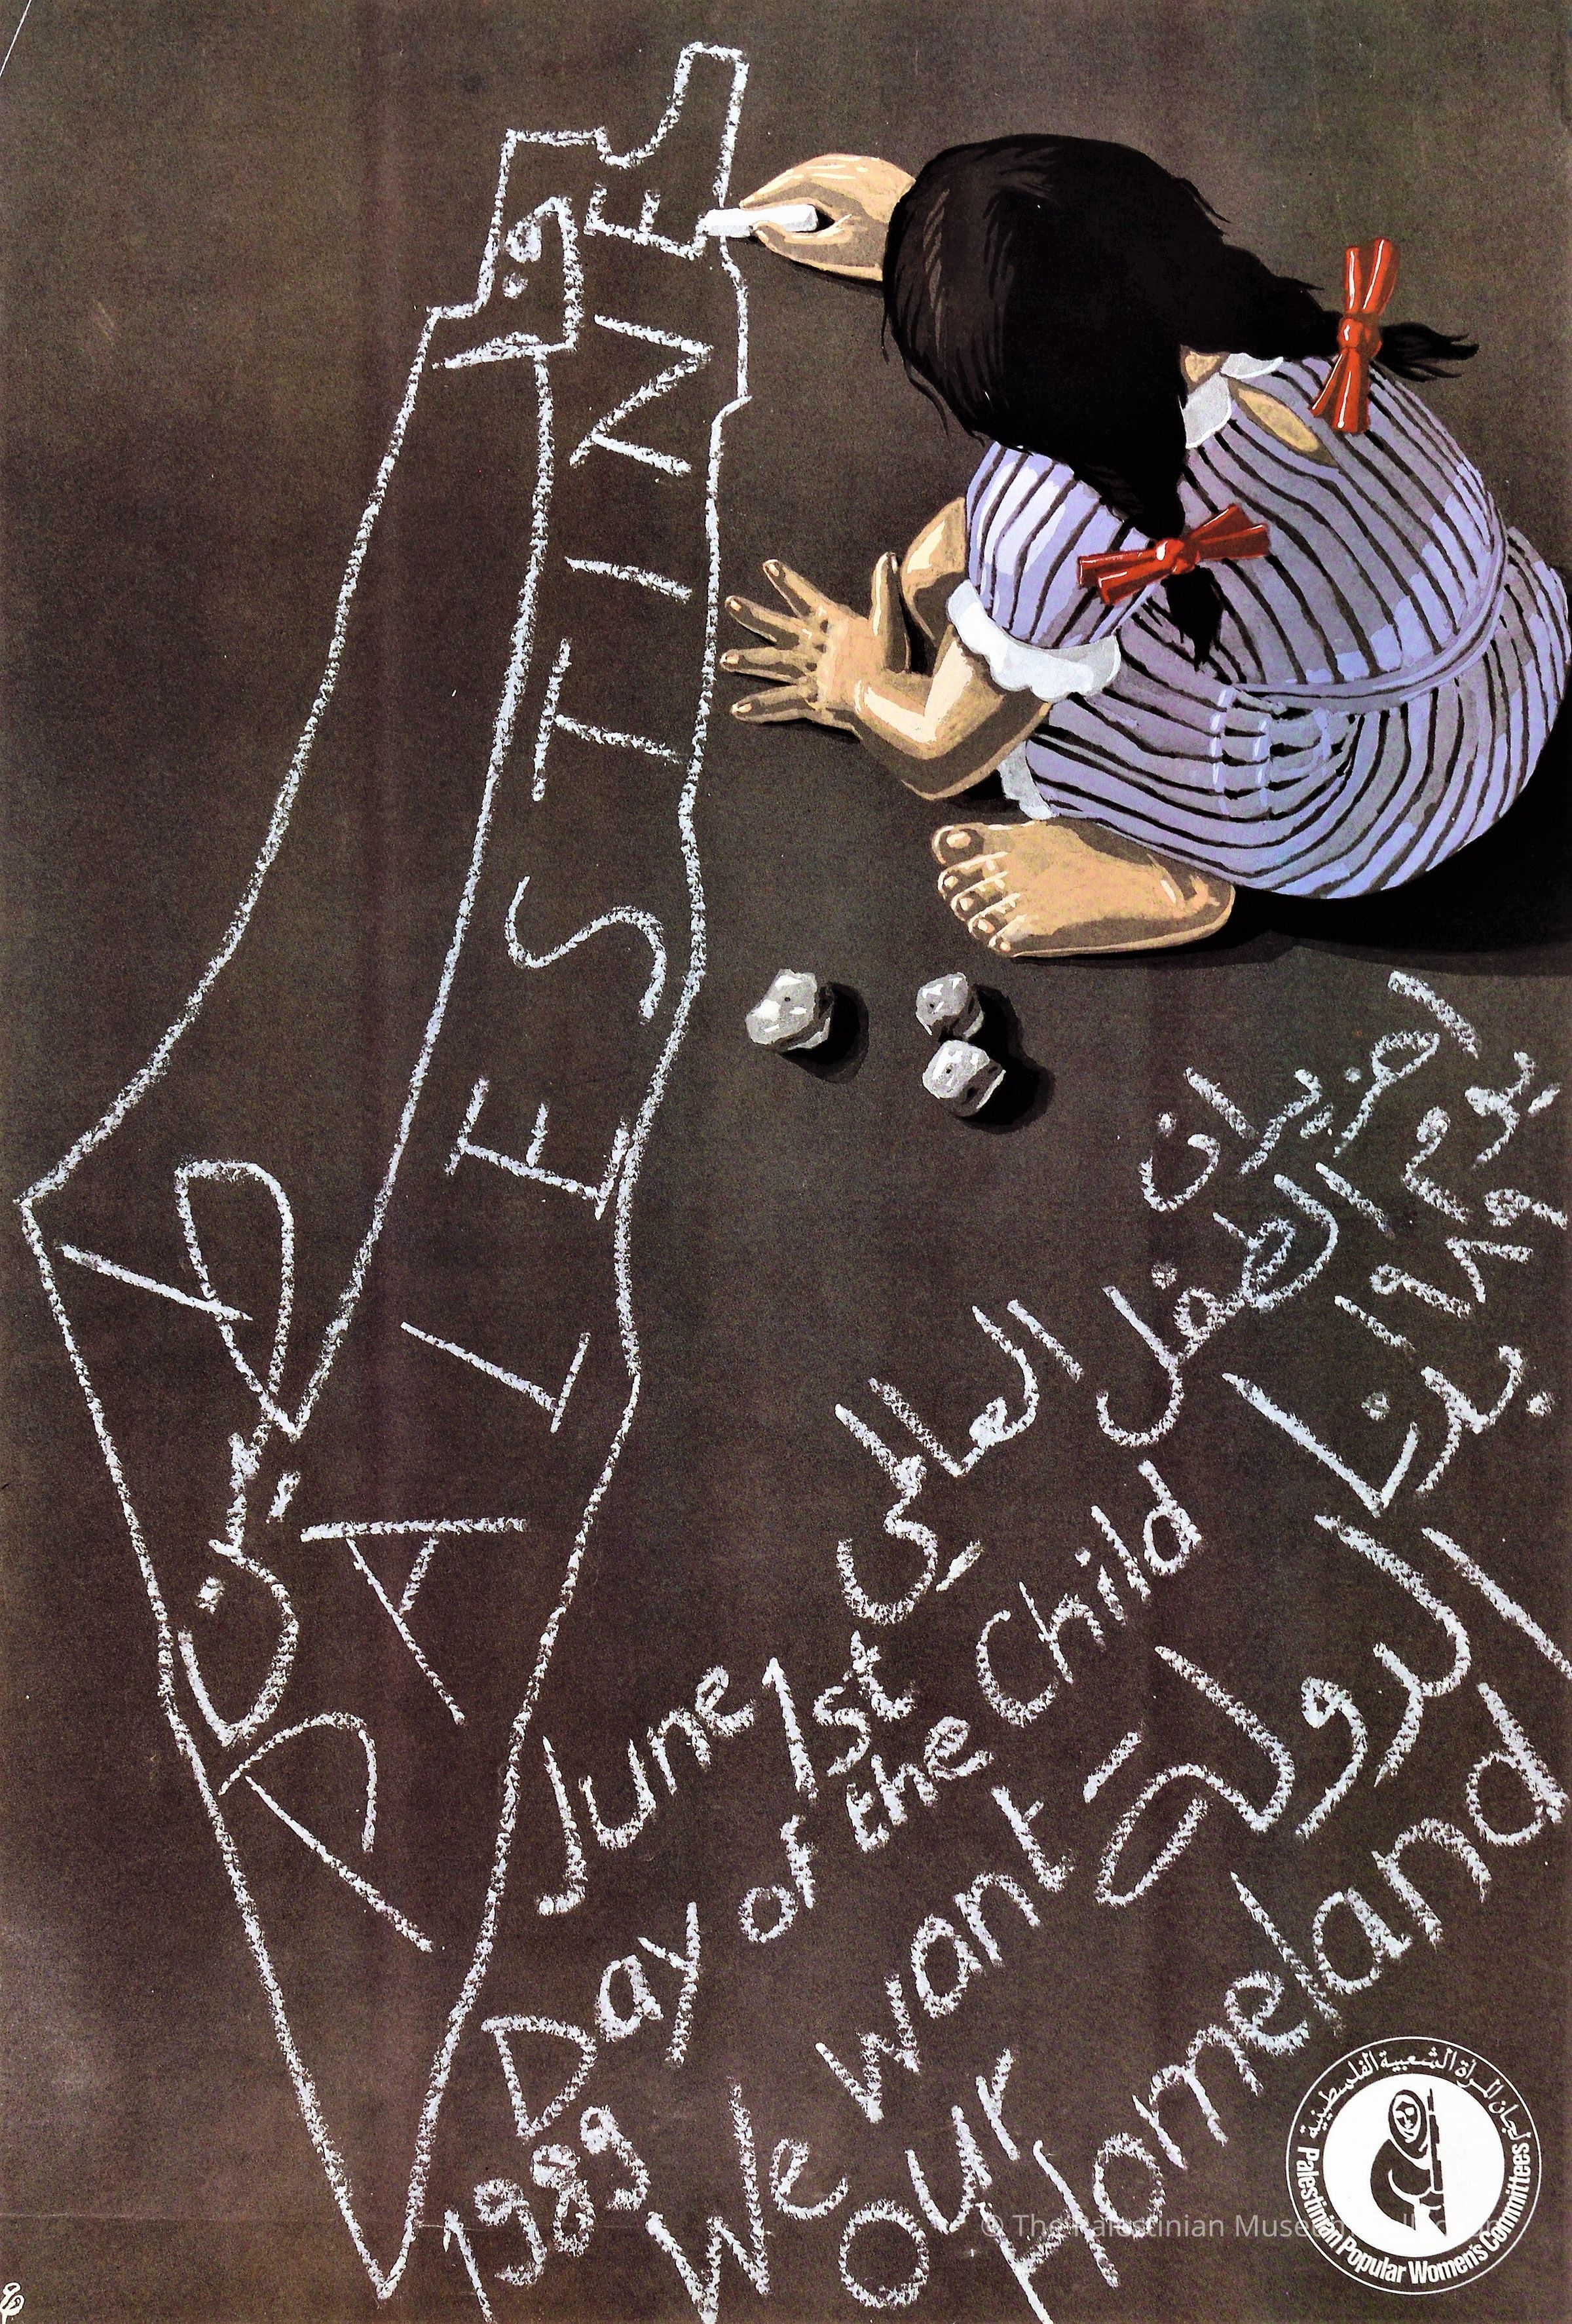 فلسطين
PALESTINE
١ حزيران
يوم الطفل العالمي
١٩٨٩
بدنا
الدولة
June 1st
Day of the Child
1989
We want
our
Homeland
لجان المرأة الشعبية الفلسطينية
Palestinian Popular Women's Committees
© The Palestinian Museum